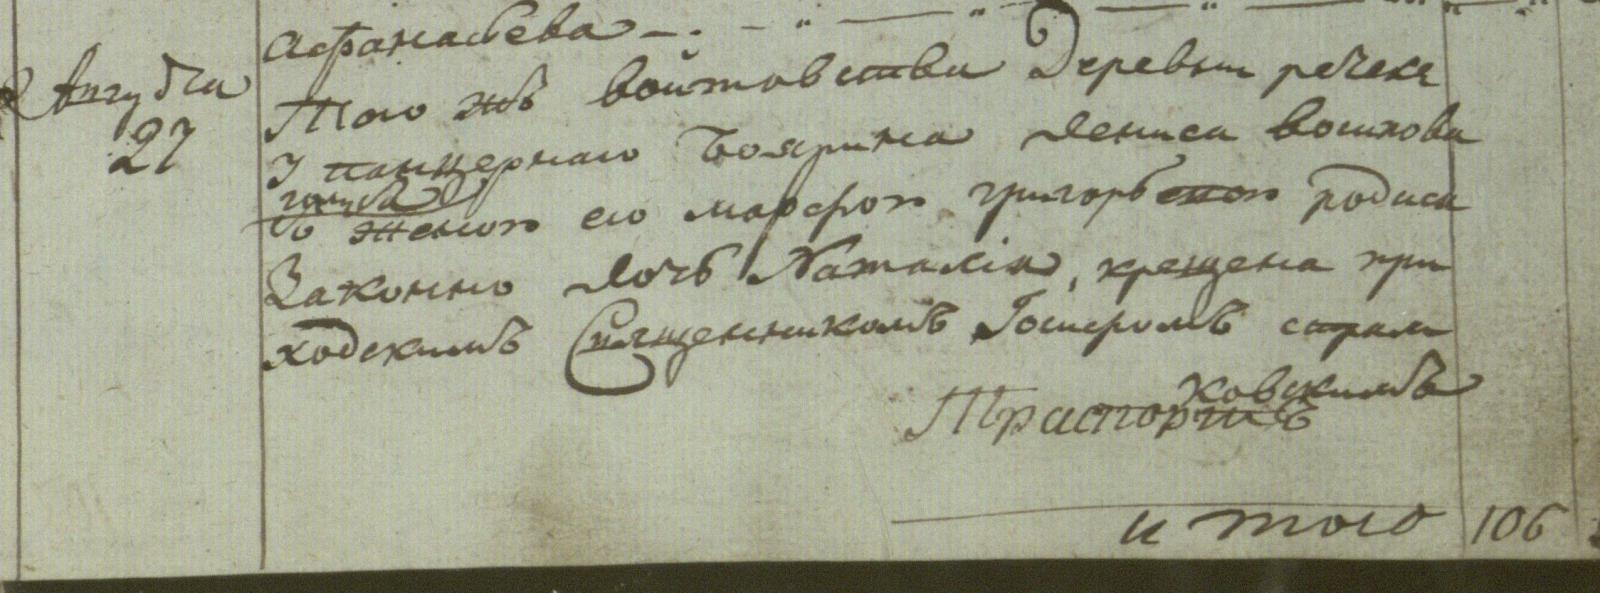 Афанасьева
Августа
27
Того жъ войтовства Деревни речекъ
У панцернаго Боярина Дениса воинова
голуба
Съ женою его марфою григорьевою родися
Законно дочь Наталія, крещена при
ходскимъ Священникомъ Іосифомъ страл
ковскимъ
Транспортъ
и того 106